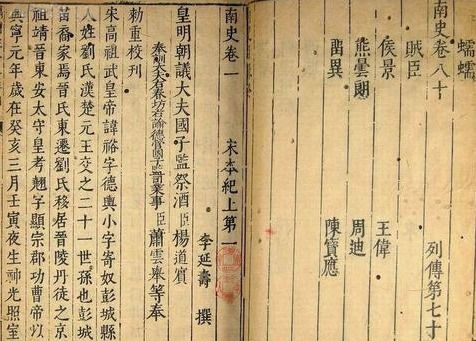 蠕蠕
南史卷八十
列傳第七十
賊臣
侯景 王偉
熊曇朗 周迪
畱異 陳寶應
南史卷一
宋本紀上第一
李延壽 撰
皇明朝議大夫國子監祭酒臣楊道賓
奉訓大夫右春坊右諭德管國子監司業事臣蕭雲舉等奉
勅重校刊
宋高祖武皇帝諱裕字德輿小字寄奴彭城縣
人姓劉氏漢楚元王交之二十一世孫也彭城
苗裔家焉晉氏東遷劉氏移居晉陵丹徒之京
祖靖晉東安太守皇考翹字顯宗郡功曹帝以
興寧元年歲在癸亥三月壬寅夜生神光照室